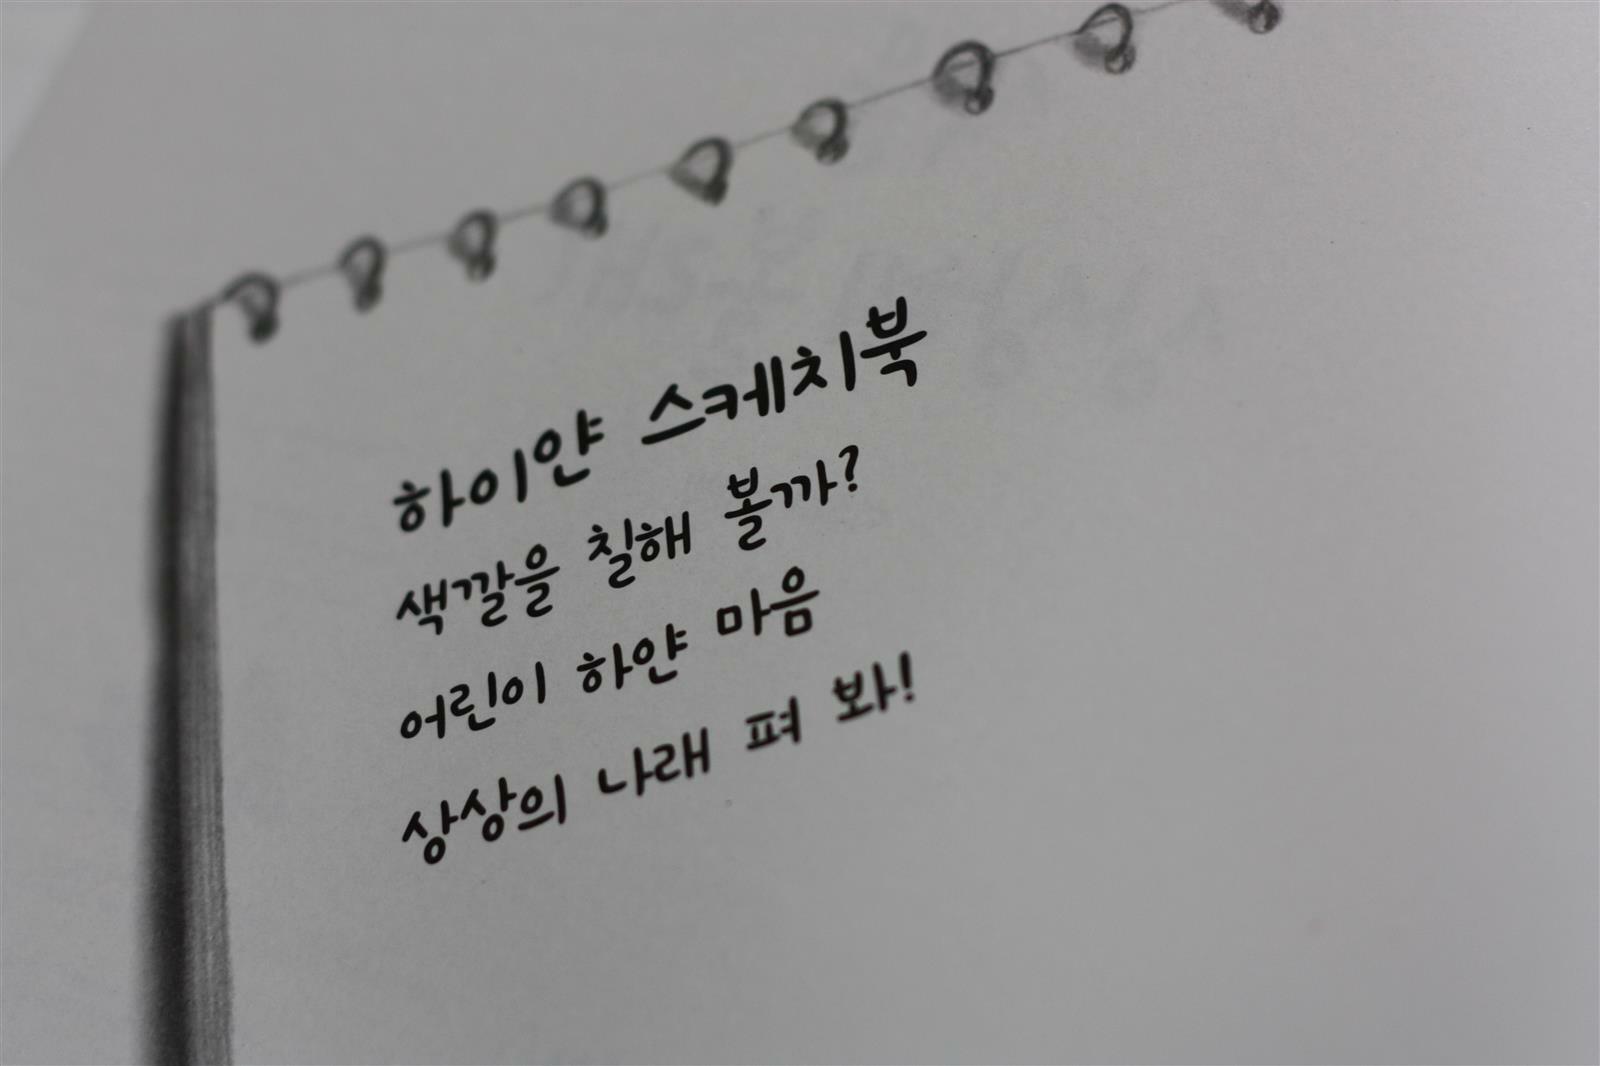 하이얀 스케치북
색깔을 칠해 볼까?
어린이 하얀 마음
상상의 나래 펴 봐!